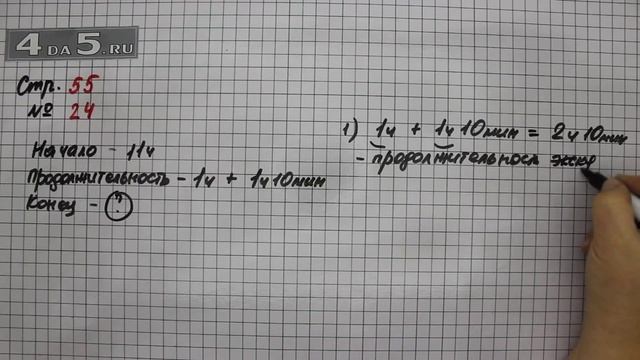 4 DA 5.RU
Стр. 55
№ 24
Начало - 11ч
Продолжительность - 1ч + 1ч10мин
Конец - ?
1) 1ч + 1ч10мин = 2ч10мин
- продолжительност экск